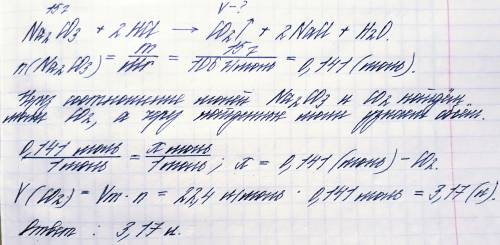 15г V-?
Na₂CO₃ + 2HCl → CO₂↑ + 2NaCl + H₂O.
n(Na₂CO₃) = m/Mr = 15г/106 г/моль = 0,141 (моль).
Через соотношение молей Na₂CO₃ и CO₂ найдём
моли CO₂, а через найденные моли узнаем объём.
0,141 моль/1 моль = x моль/1 моль ; x = 0,141 (моль) - CO₂.
V(CO₂) = Vm · n = 22,4 л/моль · 0,141 моль = 3,17 (л).
Ответ : 3,17 л.